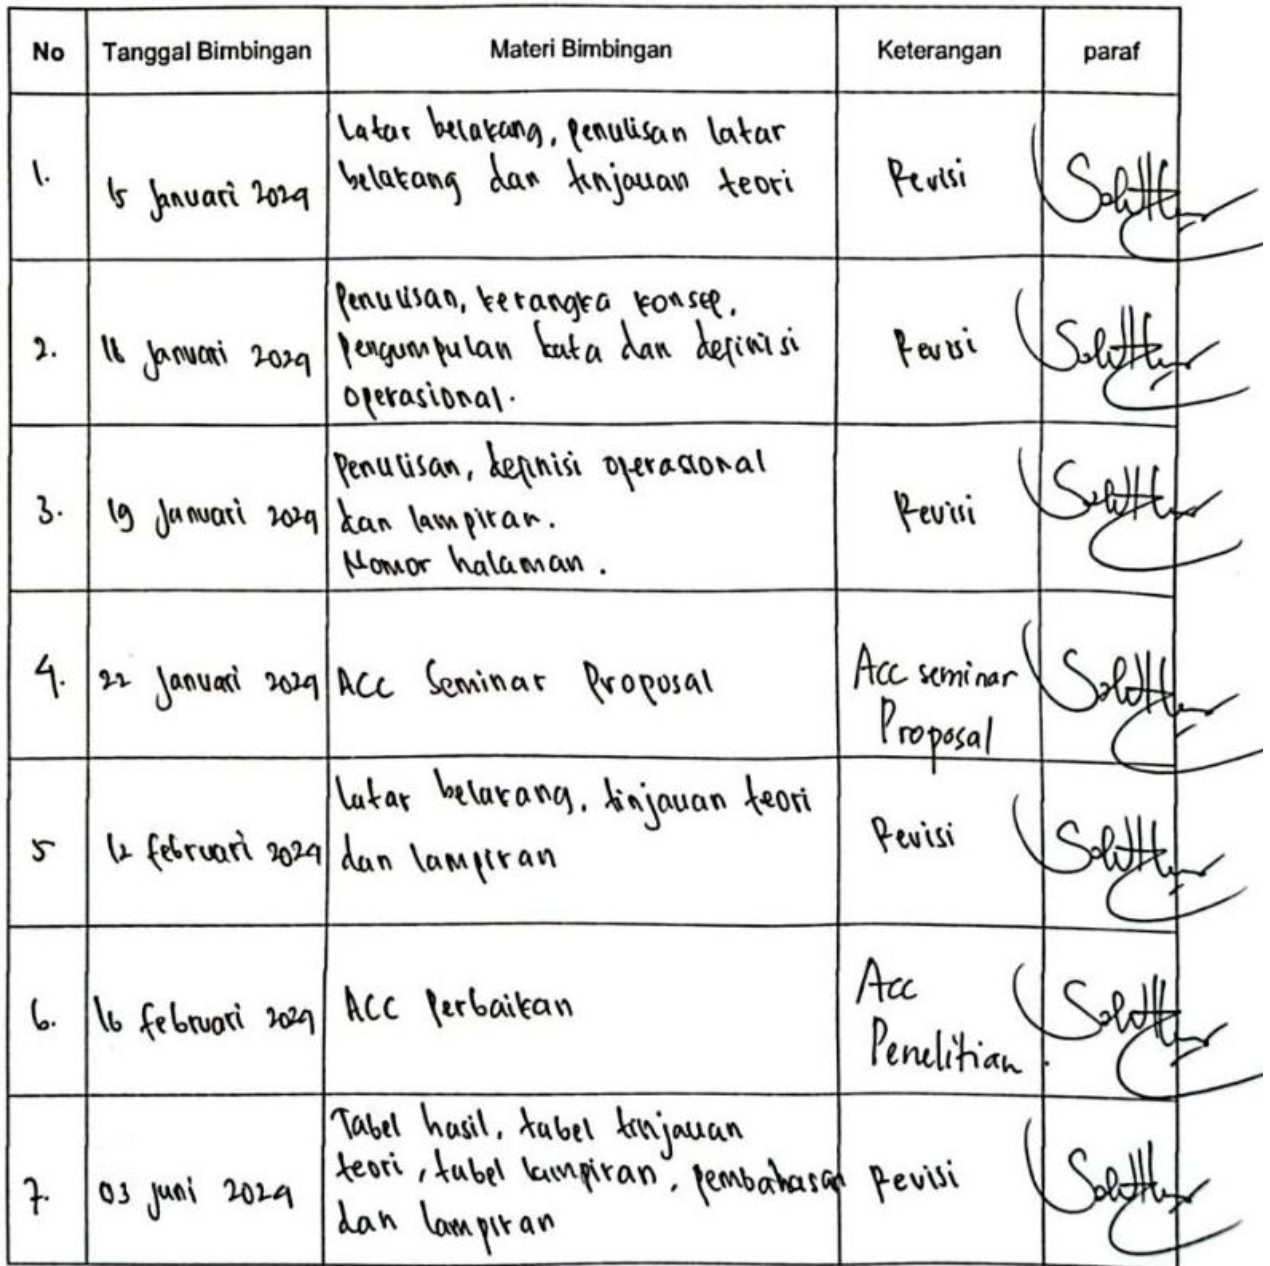 No Tanggal Bimbingan Materi Bimbingan Keterangan paraf
1. 15 Januari 2024 Latar belakang, penulisan latar
belakang dan tinjauan teori Revisi
2. 18 Januari 2024 Penulisan, kerangka konsep,
pengumpulan data dan definisi
operasional. Revisi
3. 19 Januari 2024 Penulisan, definisi operasional
dan lampiran.
Nomor halaman. Revisi
4. 22 Januari 2024 ACC Seminar Proposal Acc seminar
Proposal
5 12 februari 2024 latar belakang, tinjauan teori
dan lampiran Revisi
6. 16 februari 2024 ACC Perbaikan Acc
Penelitian.
7. 03 juni 2024 Tabel hasil, tabel tinjauan
teori, tabel lampiran, pembahasan
dan lampiran Revisi